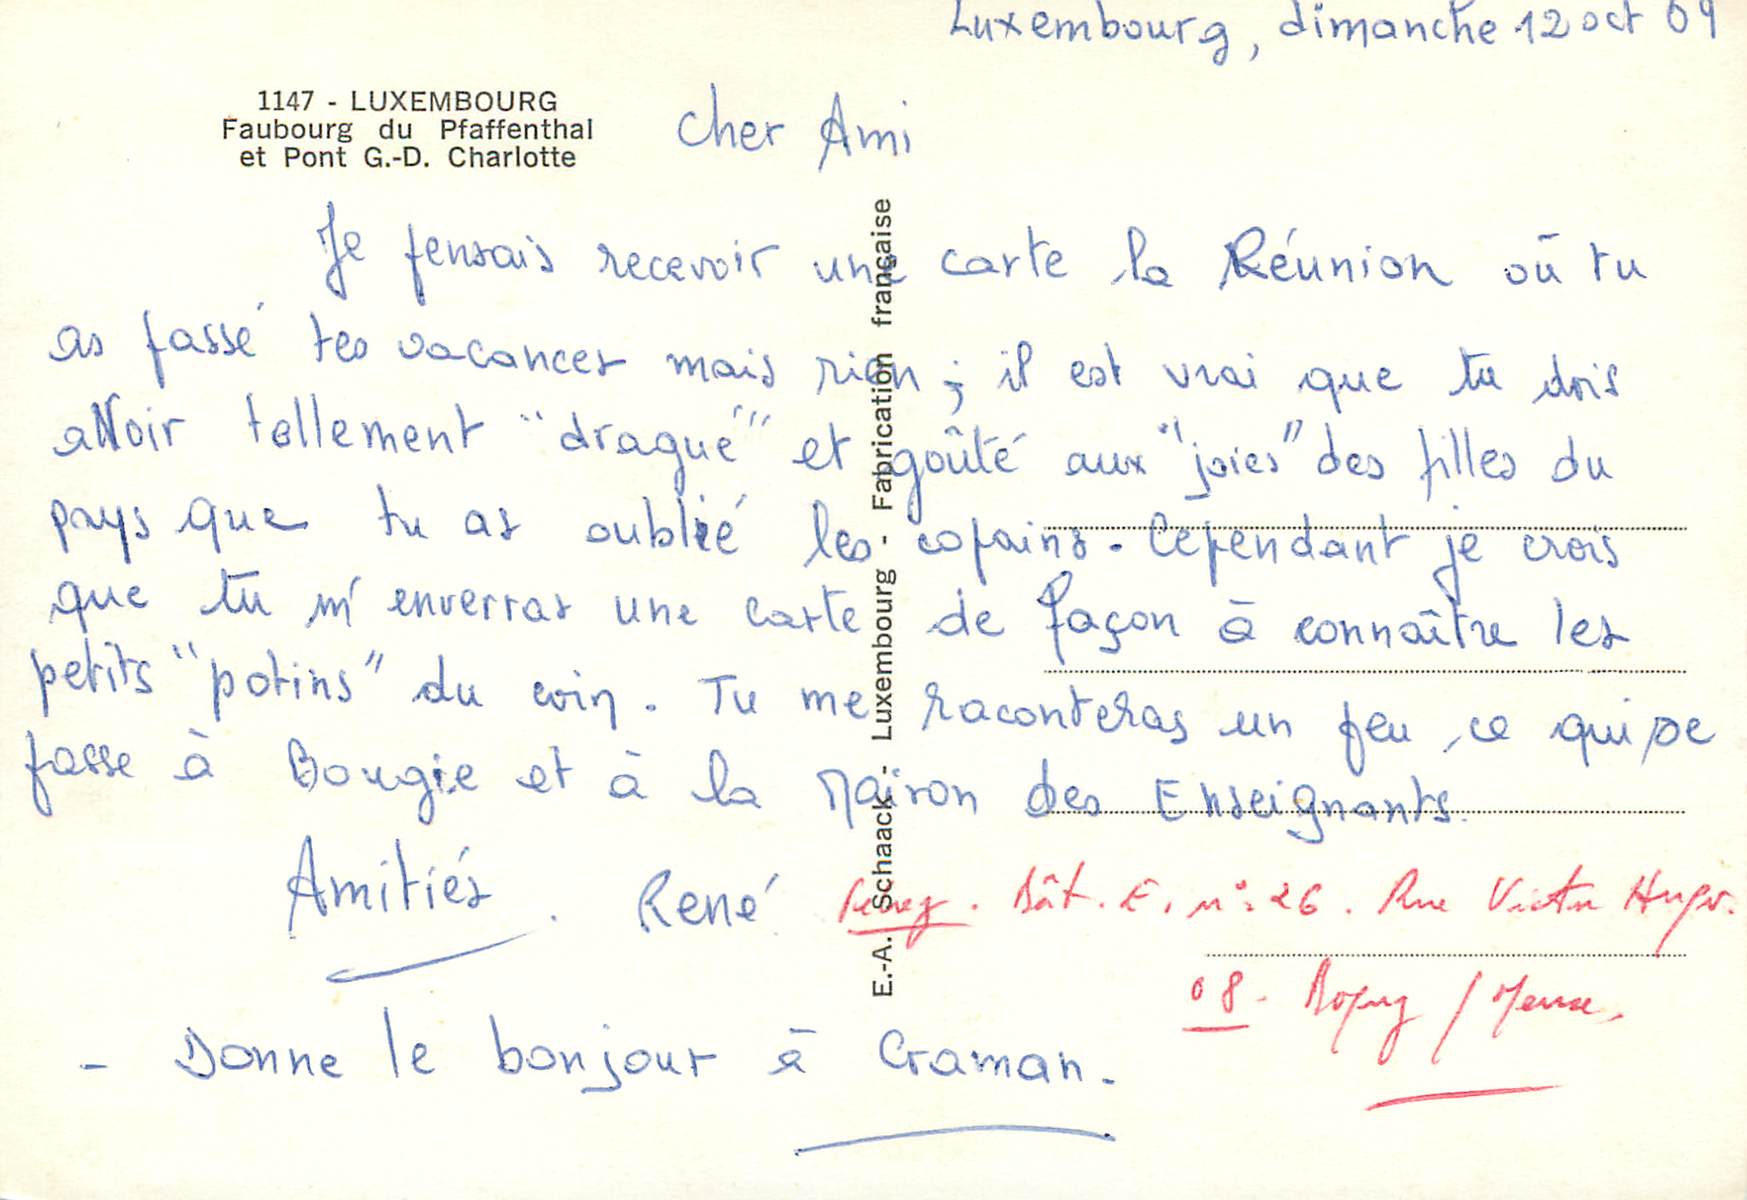 Luxembourg, dimanche 12 oct 69
1147 - LUXEMBOURG
Faubourg du Pfaffenthal
et Pont G.-D. Charlotte
Cher Ami
Je pensais recevoir une carte la Réunion où tu
as passé tes vacances mais rien ; il est vrai que tu dois
avoir tellement "dragué" et goûté aux "joies" des filles du
pays que tu as oublié les copains. Cependant je crois
que tu m'enverras une carte de façon à connaître les
petits "potins" du coin. Tu me raconteras un peu ce qui se
passe à Bougie et à la Maison des Enseignants.
Amitiés. René
Bât. E. n° 26. Rue Victor Hugo.
08. / Meuse.
- Donne le bonjour à Craman.
E.-A. Schaack - Luxembourg - Fabrication française